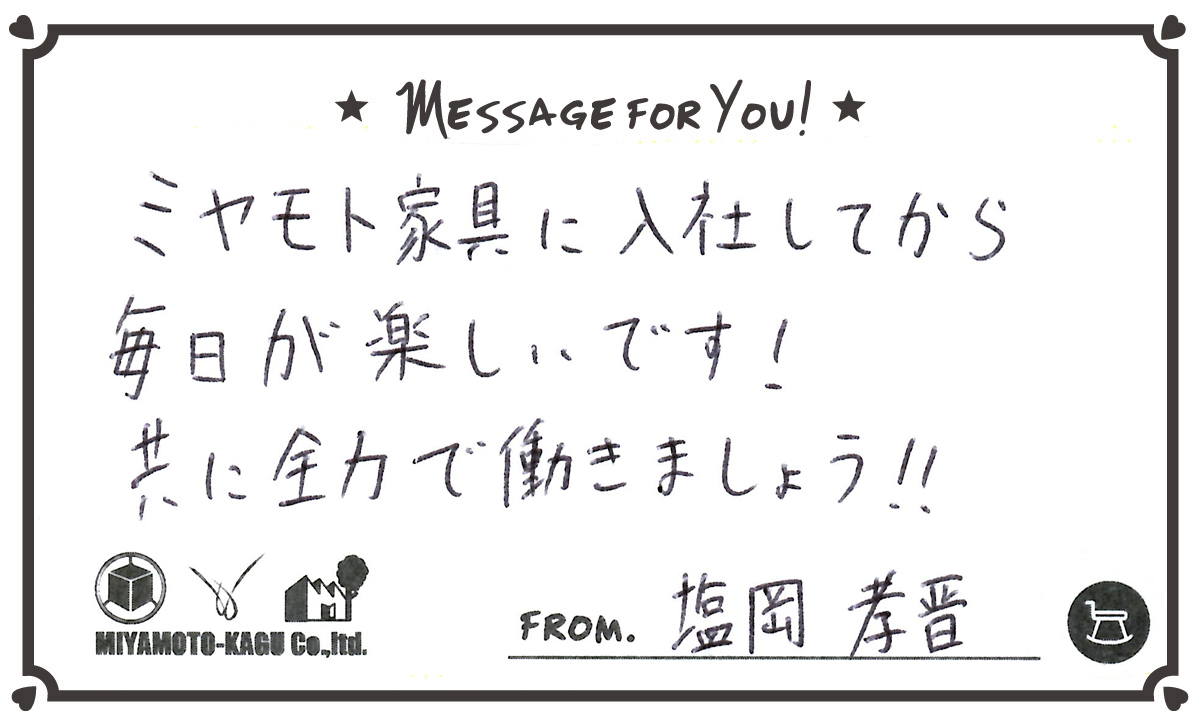 ★ MESSAGE FOR YOU! ★
ミヤモト家具に入社してから
毎日が楽しいです!
共に全力で働きましょう!!
MIYAMOTO-KAGU Co.,ltd.
FROM. 塩岡 孝晋